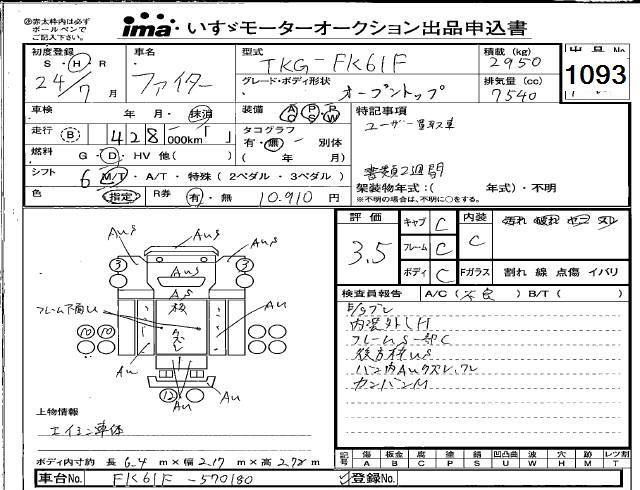 ㊟赤太枠内は必ず
ボールペンで
ご記入下さい。
ima いすゞモーターオークション出品申込書
初度登録 車名 型式 積載(kg) 出品No
S・H・R ファイター TKG-FK61F 2950 1093
24/7月 グレード・ボディ形状 排気量(cc)
オープントップ 7540
車検 年 月・抹消 装備 AC PS PW 特記事項
走行 B 428 000km タコグラフ ユーザー買取車
有・無 別体
燃料 G・D・HV 他( ) ( 年 月) 書類2週間
シフト 6 M/T・A/T・特殊(2ペダル・3ペダル) 架装物年式:( 年式)・不明
色 指定 R券 有・無 10.910 円 ※不明の場合は、不明に○をする。
評価 キャブ C 内装 汚れ 破れ ヤコゲ スレ
3.5 フレーム C C
ボディ C Fガラス 割れ 線 点傷 イバリ
AuS AuS AuS
3 3
AuS
AuS 板
フレーム下廻りU クズレ Au
10 10
Au Au
12 Au
検査員報告 A/C(不良) B/T( )
内装外しH
フレームS一部C
後方枠US
バン内Auクズレワレ
カンバンM
上物情報
エイミン車体
ボディ内寸約 長 6.4 m×幅 2.17 m×高 2.72 m
記号 傷 板金 腐 塗 錆 凹凸曲 波 穴 跡 レツ割
A B C P S U W H M T
車台No. FK61F-570180 登録No.